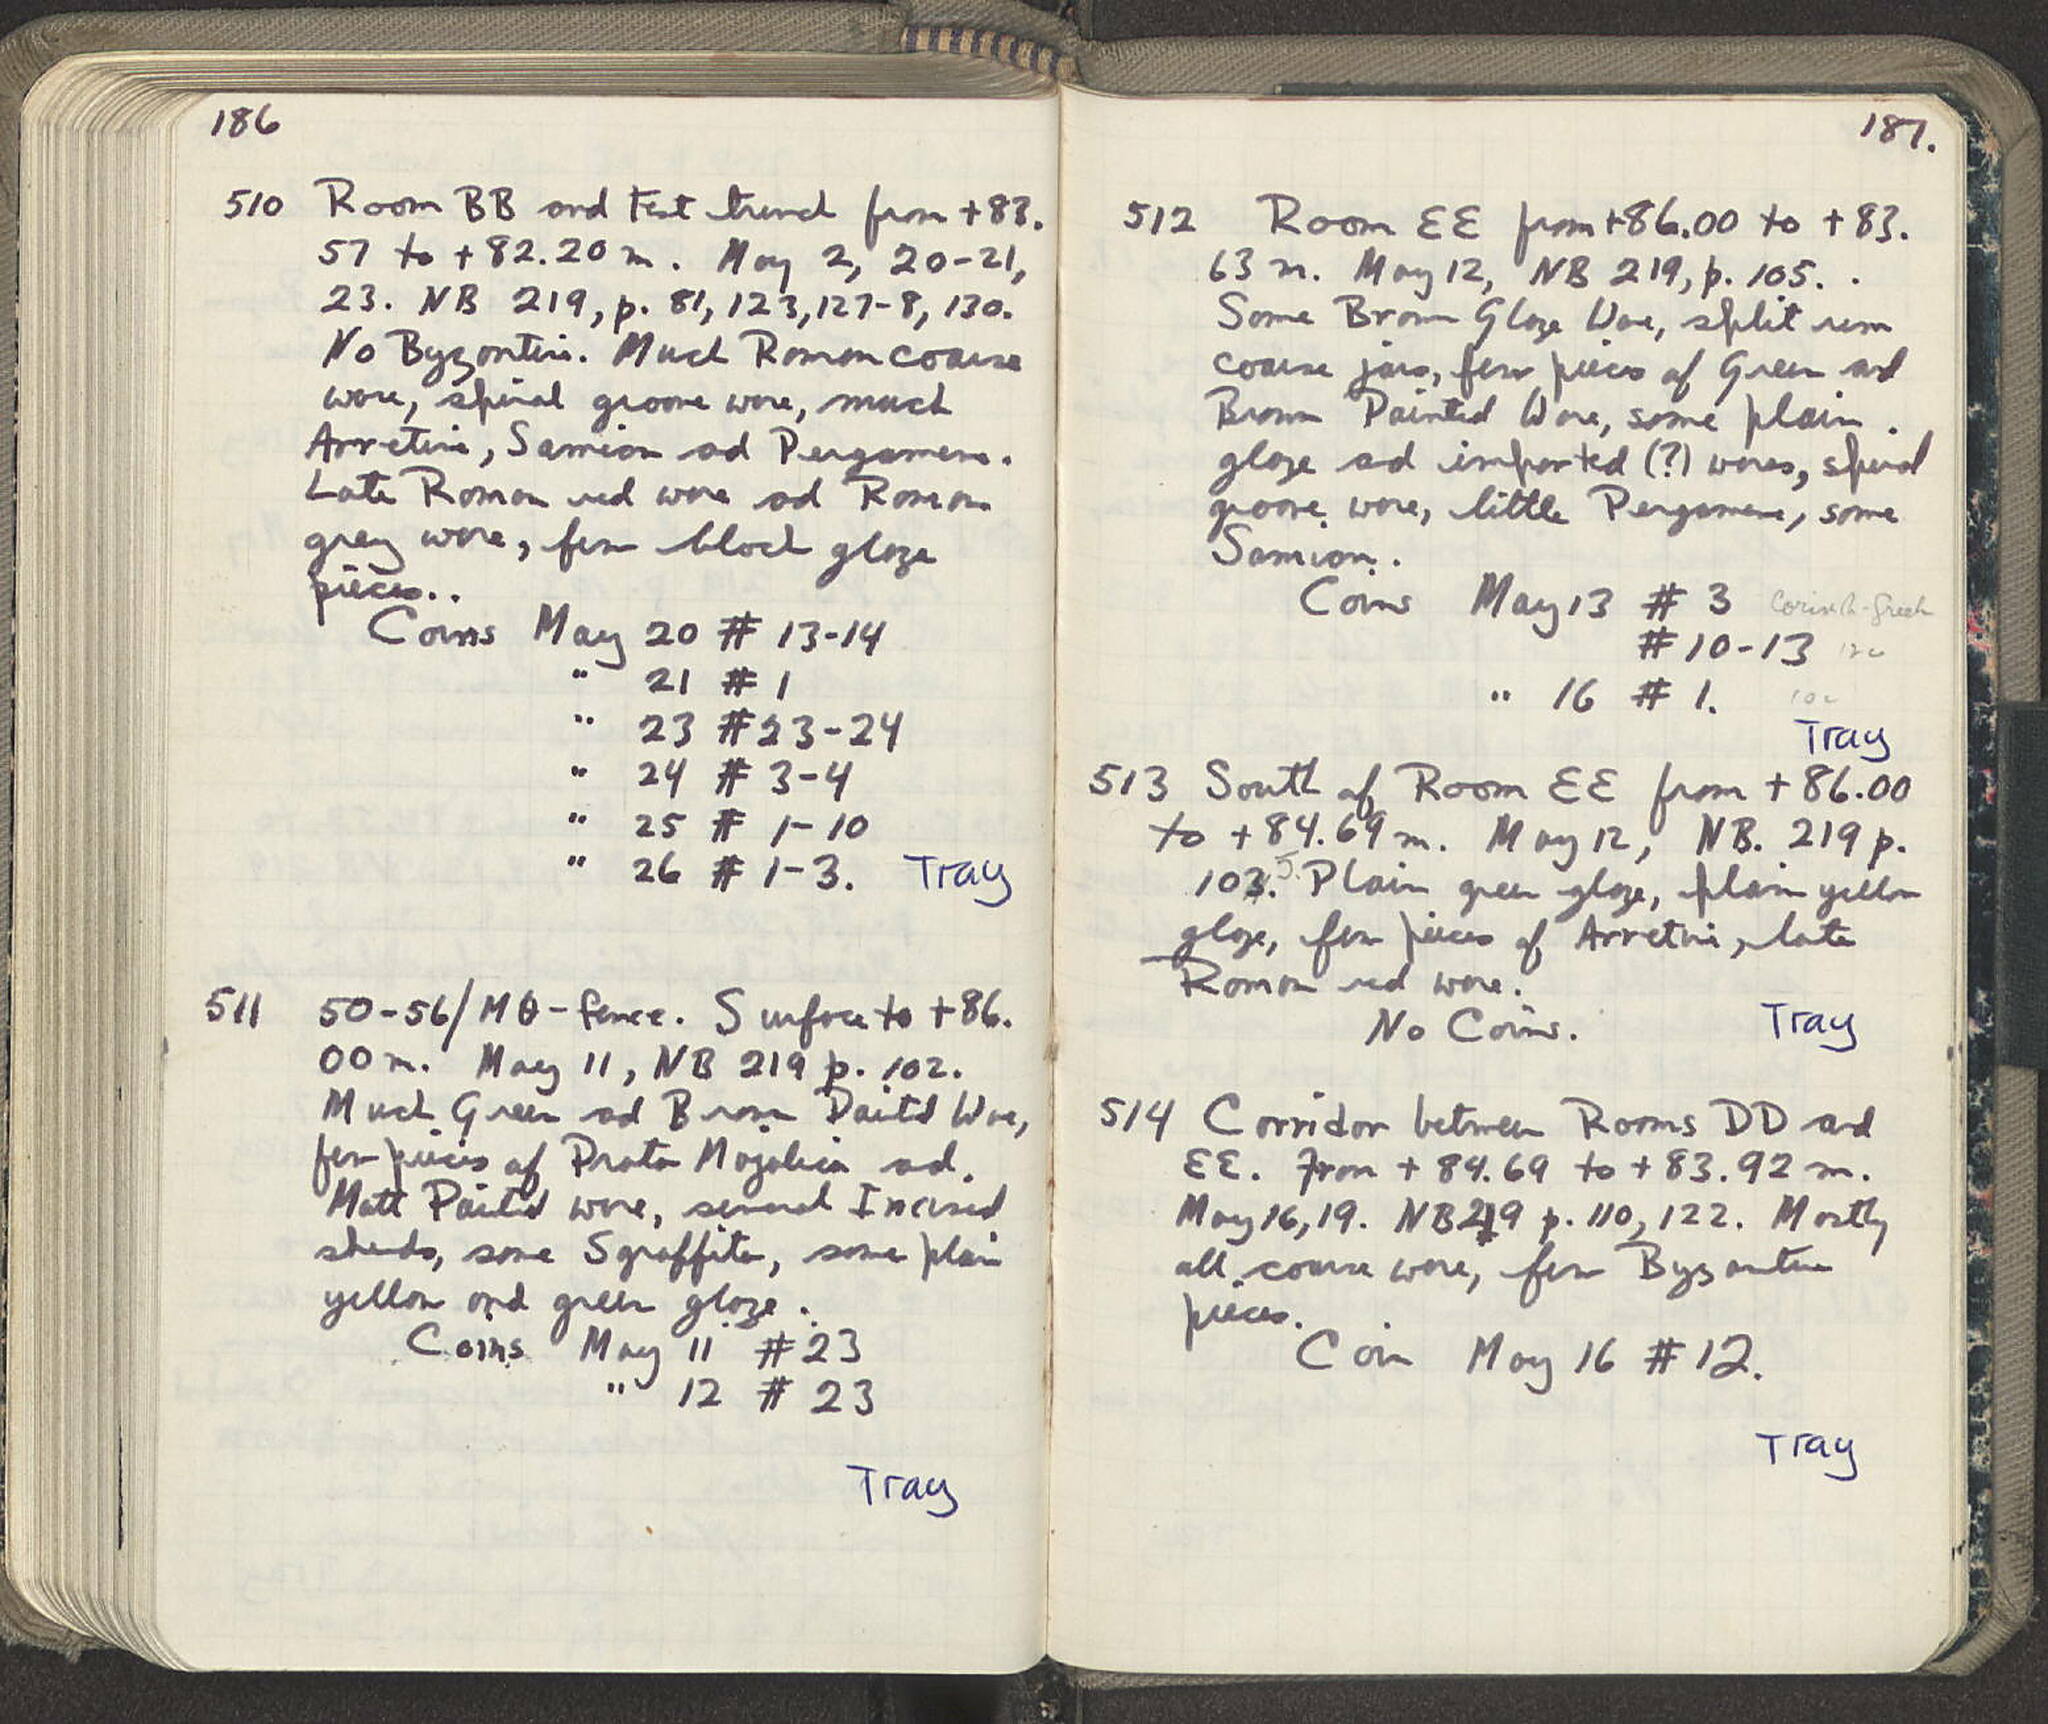 186
510 Room BB and test trench from +83.
57 to +82.20 m. May 2, 20-21,
23. NB 219, p. 81, 123, 127-8, 130.
No Byzantine. Much Roman coarse
ware, spiral groove ware, much
Arretine, Samian and Pergamene.
Late Roman red ware and Roman
grey ware, few black glaze
pieces..
Coins May 20 # 13-14
" 21 # 1
" 23 # 23-24
" 24 # 3-4
" 25 # 1-10
" 26 # 1-3. Tray
511 50-56/Mθ-fence. Surface to +86.
00 m. May 11, NB 219 p. 102.
Much Green and Brown Painted Ware,
few pieces of Proto Majolica and
Matt Painted ware, several Incised
sherds, some Sgraffito, some plain
yellow and green glaze.
Coins May 11 # 23
" 12 # 23
Tray
187.
512 Room EE from +86.00 to +83.
63 m. May 12, NB 219, p. 105.
Some Brown Glaze Ware, split rim
coarse jars, few pieces of Green and
Brown Painted Ware, some plain
glaze and imported (?) wares, spiral
groove ware, little Pergamene, some
Samian.
Coins May 13 # 3 Corinth-Greek
# 10-13 12c
" 16 # 1. 10c
Tray
513 South of Room EE from +86.00
to +84.69 m. May 12, NB. 219 p.
103. 5 Plain green glaze, plain yellow
glaze, few pieces of Arretine, late
Roman red ware.
No Coins. Tray
514 Corridor between Rooms DD and
EE. From +84.69 to +83.92 m.
May 16, 19. NB 219 p. 110, 122. Mostly
all coarse ware, few Byzantine
pieces.
Coin May 16 # 12.
Tray